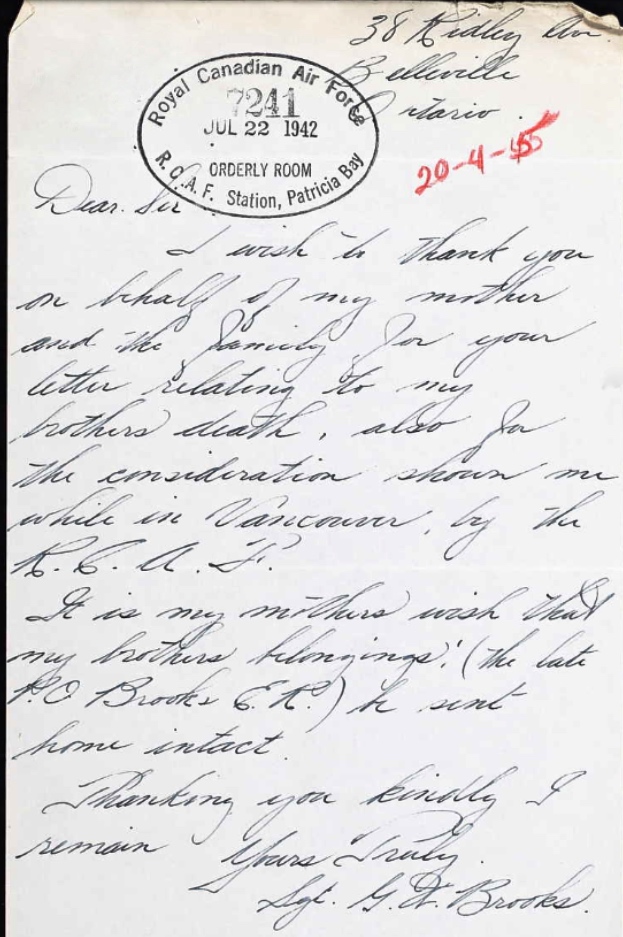 38 Ridley Ave.
Belleville
Ontario.
Royal Canadian Air Force
7241
JUL 22 1942
ORDERLY ROOM
R.C.A.F. Station, Patricia Bay
20-4-45
Dear Sir
I wish to thank you
on behalf of my mother
and the family for your
letter relating to my
brothers death, also for
the consideration shown me
while in Vancouver, by the
R.C.A.F.
It is my mothers wish that
my brothers belongings! (the late
P.O Brooks E.R.) be sent
home intact.
Thanking you kindly I
remain Yours Truly.
Sgt. G. W. Brooks.